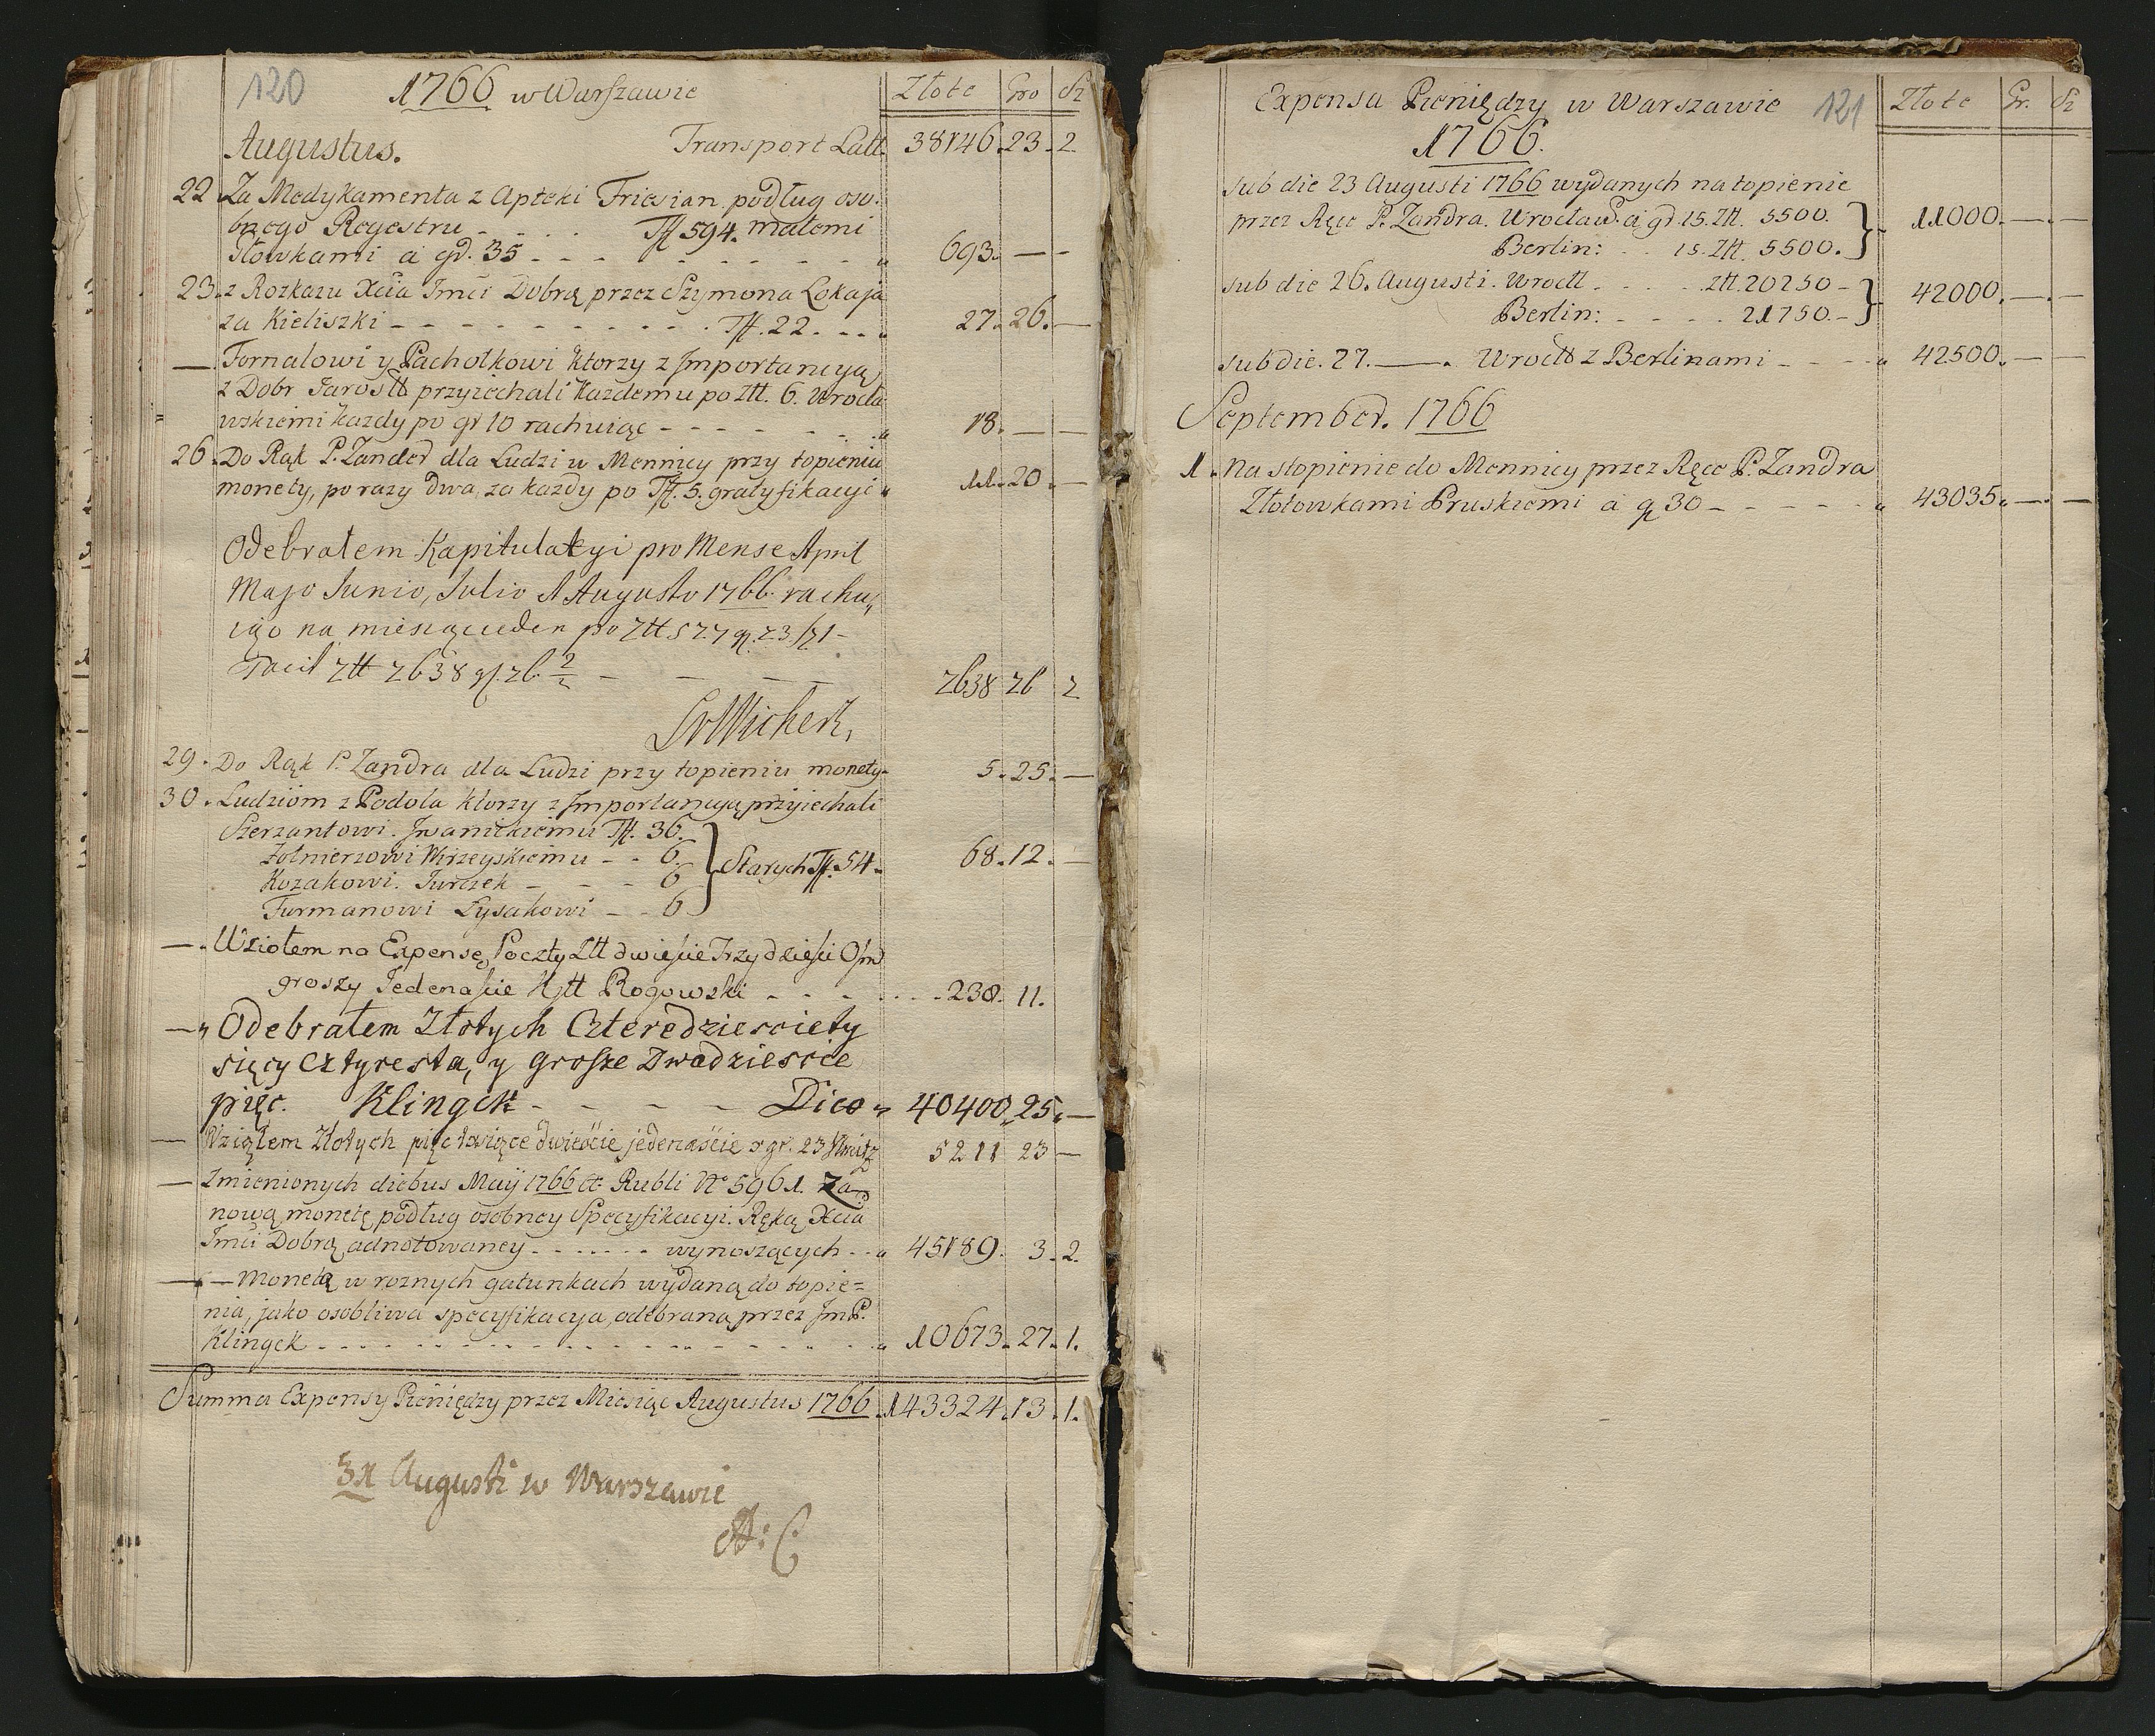 120 1766 w Warszawie Złote Gro Sz
Augustus. Transport Latt. 38146. 23. 2.
22. Za Medykamenta z Apteki Friesian. podług oso-
bnego Regestru - - - - Tƒ 594. małemi
Tłowkami á gd. 35 - - - - - - - - 693. — -
23. z Rozkazu Xcia Jmci Dobrą przez Szymona Lokaja
za Kieliszki - - - - - - - - - - Tƒ. 22. - - - 27. 26. —
— Fornalowi y Pachołkowi ktorzy z Jmportancyą
z Dobr Jarosłł przyiechali każdemu po Ztt. 6. Wrocła
wskiemi każdy po gr 10 rachuiąc - - - - - - - 18. — —
26. Do Rąk P. Zander dla Ludzi w Mennicy przy topieniu
monety, po razy dwa, za każdy po Tƒ. 5. gratyfikacyi 11. 20. —
Odebrałem Kapitulacyi pro Mense April
Majo Junio, Julio A Augusto 1766. rachu„
iąo na miesiąc ieden po Ztt 527 gr. 23 ſz 1 -
Facit Ztt 2638 gr. 26. 2/2 - - - - 2638 26 2
29. Do Rąk P. Zandra dla Ludzi przy topieniu monety- 5. 25. —
30. Ludziom z Podola ktorzy z Jmportancyą przyiechali
Szerzantowi. Jwanickiemu Tƒ. 36.
Zołnierzowi Wirzeyskiemu - - 6. } Starych Tƒ. 54. 68. 12. —
Kozakowi. Turczek - - - 6
Furmanowi Łysakowi - - 6
— . Wziołem na Expensę Poczty Ztt dwieſcie Trzydzieſci Oſm
groszy Jedenaſcie Mtt Rogowski - - - - - - 238. 11.
— „ Odebrałem Złotych Czteredziesciety
sięcy cztyresta, y Groſze Dwadziescie
pięc. Klingck - - - - Dico „ 40400„ 25„ —
— Wziąłem Złotych pięc tysięce dwieście jedenaście x gr. 23 5211 23 —
— Zmienionych diebus Maij 1766 ct Rubli No 5961. Za
nową monetę podług osobney Specyfikacyi. Ręką Xcia
Jmci Dobrą adnotowaney - - - - - - - wynoszących - - 45189. 3. 2.
— — Monetą w roznych gatunkach wydaną do topie=
nia, jako osobliwa specyfikacya, odebrana przez Jm P.
Klingck - - - - - - - - - - - - - - 10673. 27. 1.
Summa Expensy Pieniędzy przez Miesiąc Augustus 1766. 143324. 13. 1.
31 Augusti w Warszawie
A: C
Expensa Pieniędzy w Warszawie 121 Złote Gr. Sz
1766.
sub die 23 Augusti 1766 wydanych na topienie
przez Ręce P. Zandra. Wrocław. á gd. 15. Ztt. 5500. } 11000. —. —
Berlin: - - 15. Ztt. 5500.
sub die 26. Augusti. Wrocłł - - - - - Ztt. 20250 - } 42000. —. —
Berlin: - - - - 21750. -
sub die. 27. —. Wrocłł z Berlinami - - - - 42500. — —
September. 1766
1. Na stopienie do Mennicy przez Ręce P. Zandra
Złotowkami Pruskiemi á gr 30 - - - - - 43035. —. —